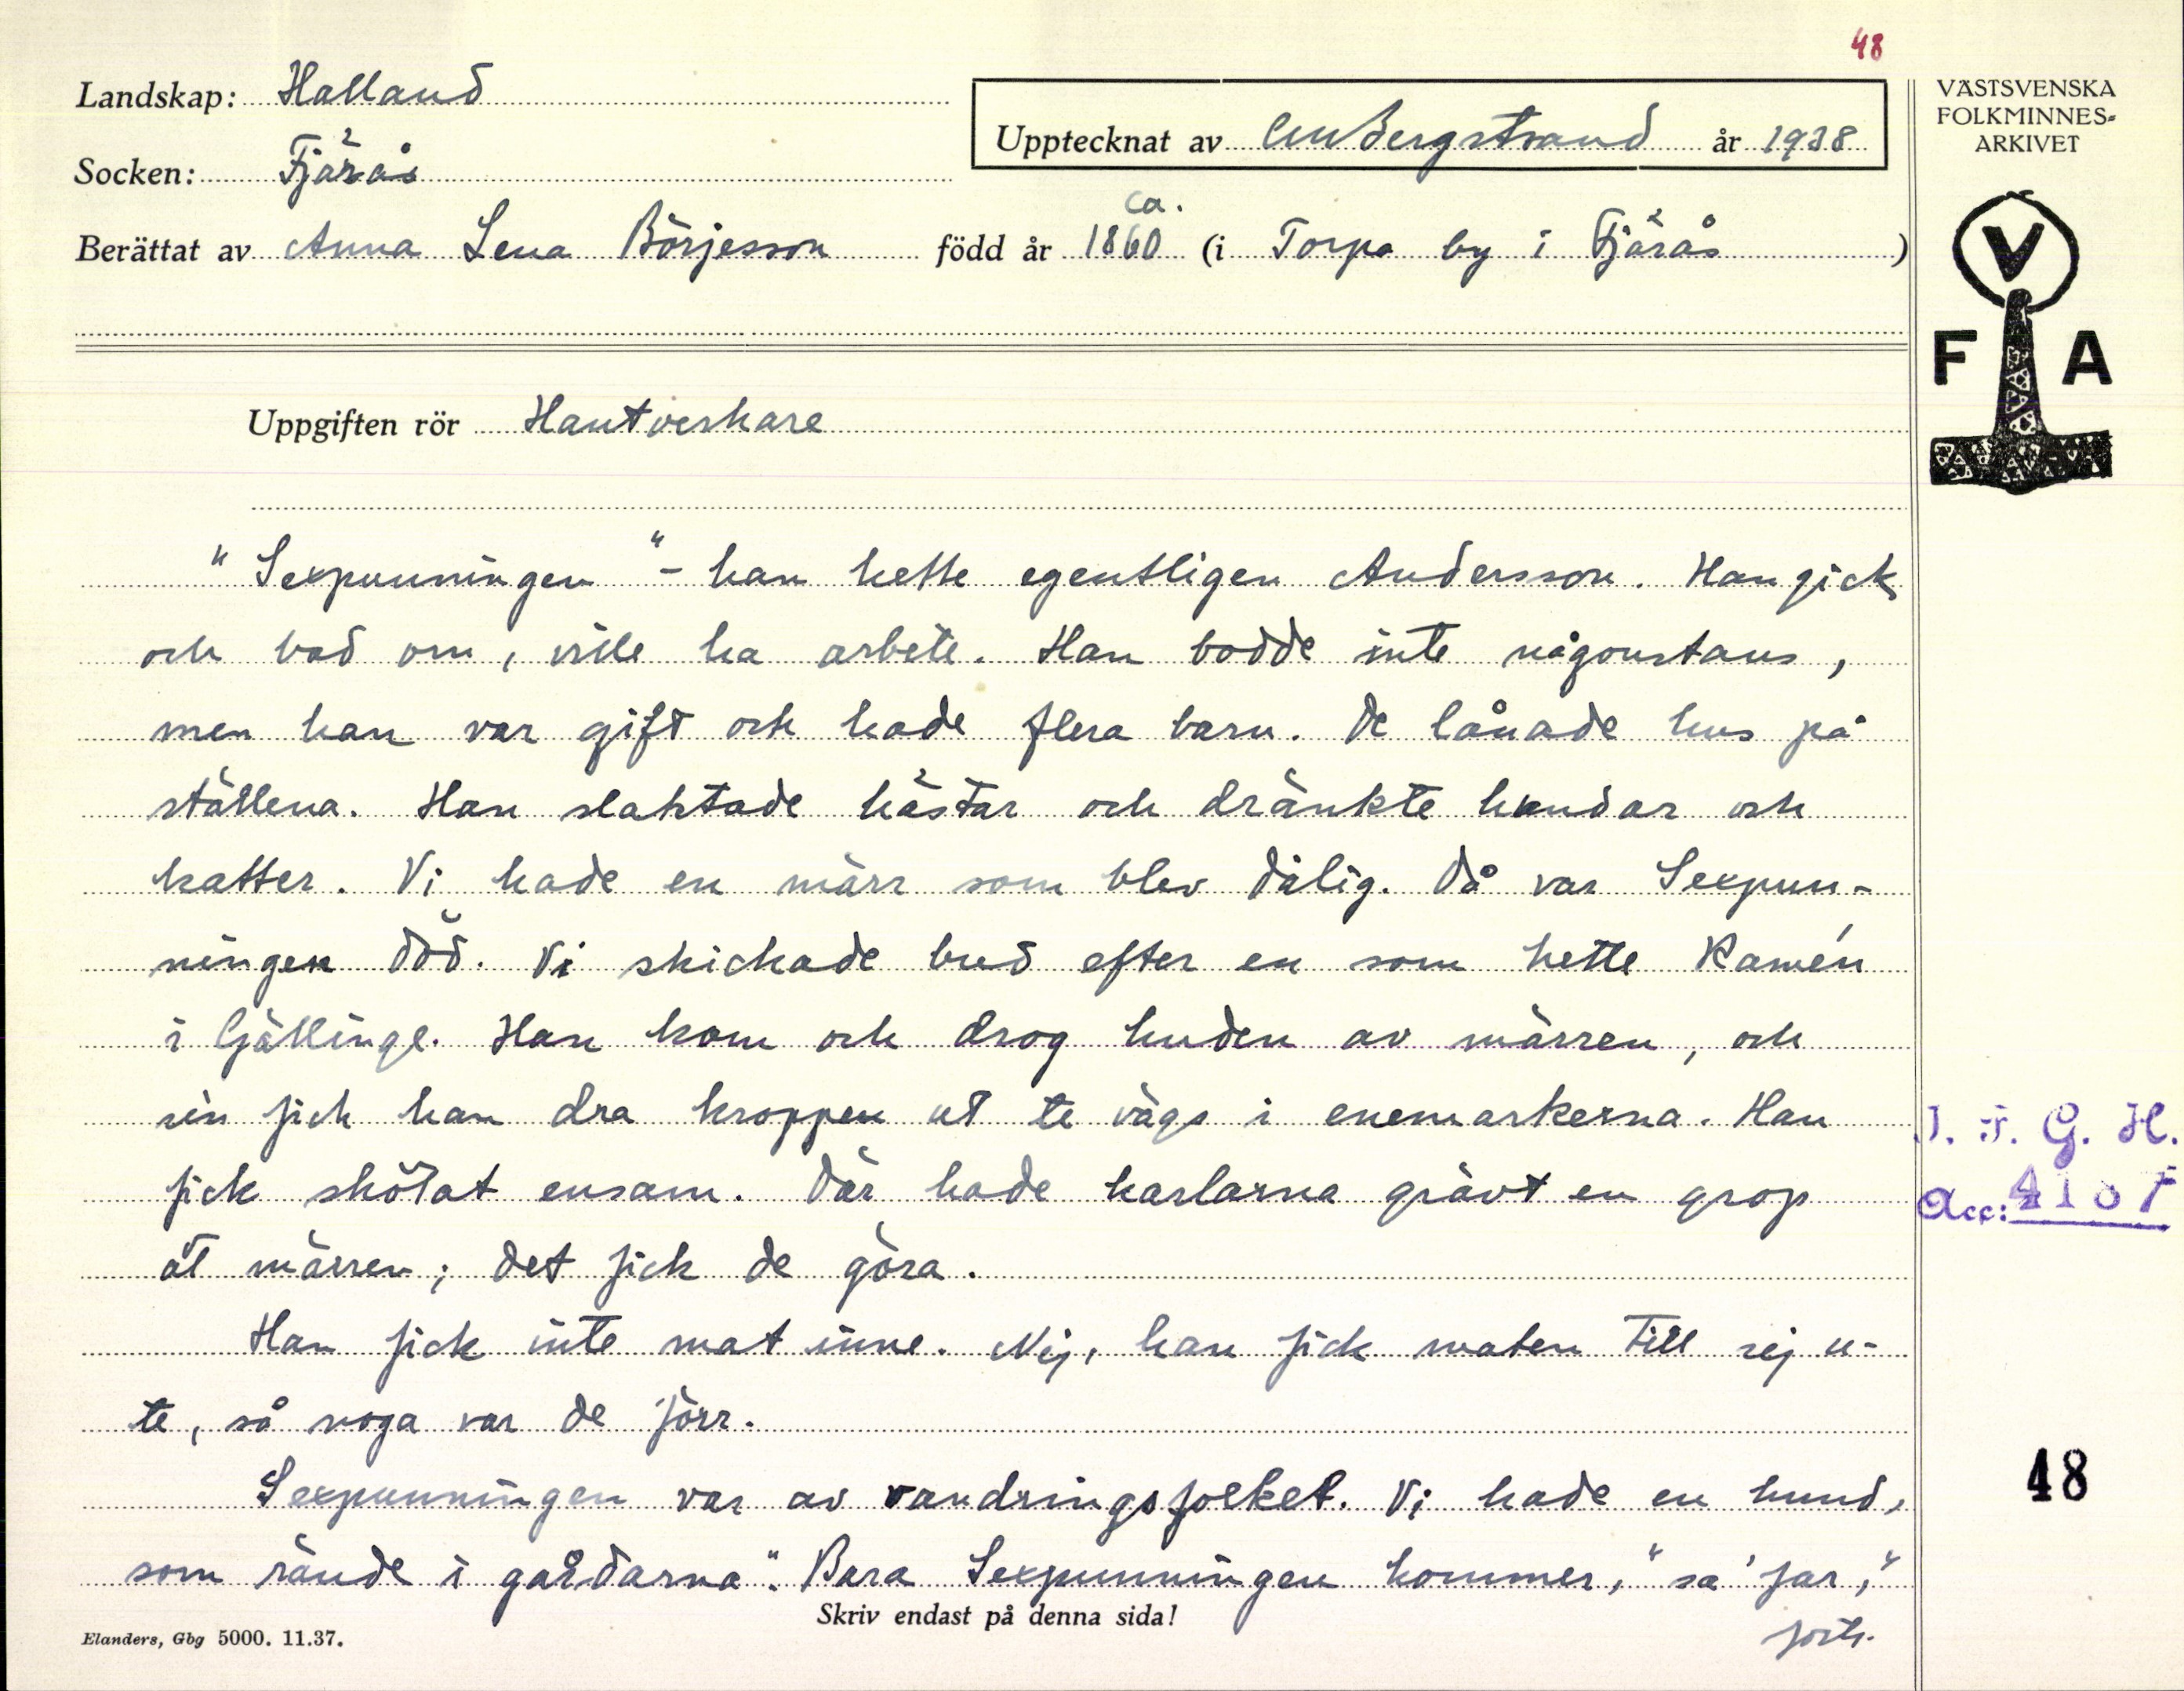 48
Landskap: Halland
Upptecknat av CMBergstrand år 1938
VÄSTSVENSKA
FOLKMINNES-
ARKIVET
Socken: Fjärås
ca.
Berättat av Anna Lena Börjesson född år 1860 (i Torpa by i Fjärås )
V
F A
Uppgiften rör Hantverkare
"Sexpunningen" - han hette egentligen Andersson. Han gick
och bad om, ville ha arbete. Han bodde inte någonstans,
men han var gift och hade flera barn. De lånade hus på
ställena. Han slaktade hästar och dränkte hundar och
katter. Vi hade en märr som blev dålig. Då var Sexpun-
ningen död. Vi skickade bud efter en som hette Ramén
i Gällinge. Han kom och drog huden av märren, och
sin fick han dra kroppen ut te vägs i enemarkerna. Han
fick sköt'at ensam. Där hade karlarna grävt en grop
åt märren; det fick de göra.
Han fick inte mat inne. Nej, han fick maten till sej u-
te, så noga var de förr.
Sexpunningen var av vandringsfolket. Vi hade en hund,
som rände i gårdarna. "Bara Sexpunningen kommer," sa' far, "
forts.
I. F. G. H.
Acc: 4107
48
Skriv endast på denna sida!
Elanders, Gbg 5000. 11.37.